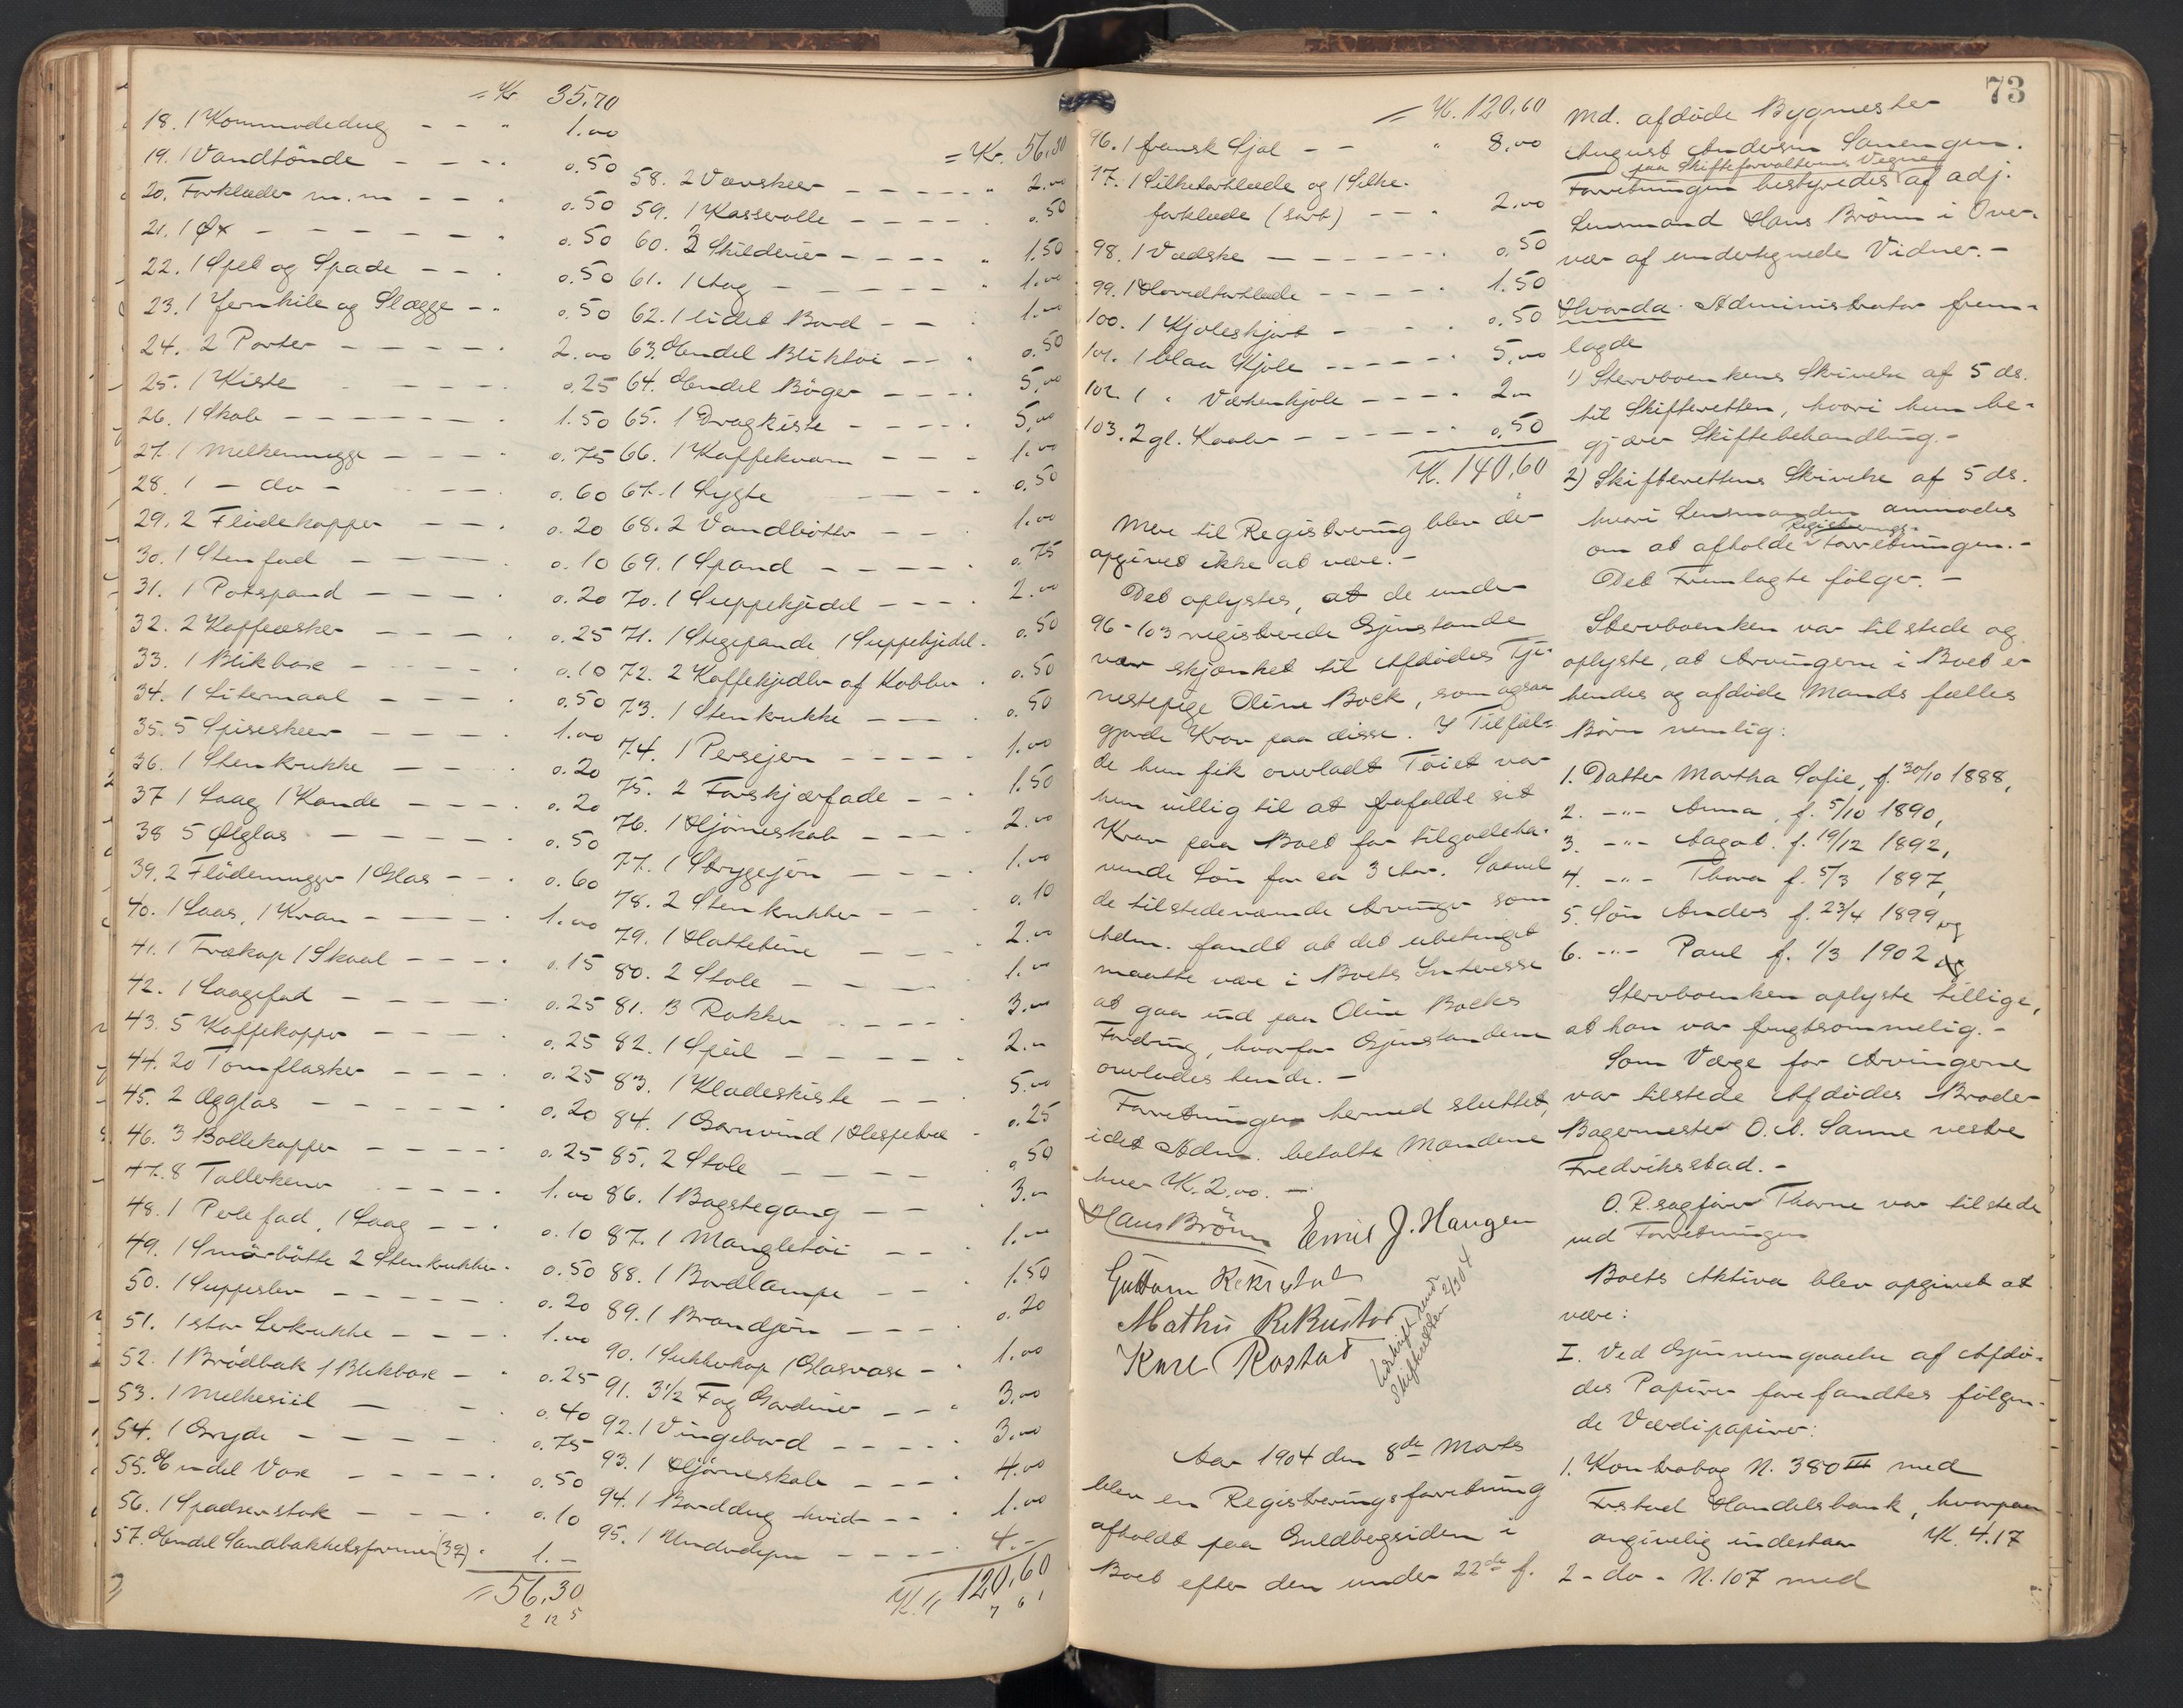 = Kr 35,70
18. 1 Kommodedug - - " 1.00
19. 1 Vandtönde - - - - 0.50
20. Forklæder m.m - - " 0.50
21. 1 Øx - - - - - " 0.50
22. 1 Spet og Spade - - " 0.50
23. 1 Jernkile og Slægge - " 0.50
24. 2 Porter - - - - - 2.00
25. 1 Kiste - - - - 0.25
26. 1 Skab - - - - - - 1.50
27. 1 Melkemugge - - - - 0.75
28. 1 - do - - - - 0.60
29. 2 Flödekopper - - - 0.20
30. 1 Stenfad - - - - 0.10
31. 1 Potspand - - - - 0.20
32. 2 Kaffeæsker - - - 0.25
33. 1 Blikbox - - - - - 0.10
34. 1 Litermaal - - - - 0.50
35. 5 Spiseskeer - - - - 1.00
36. 1 Stenkrukke - - - 0.20
37 1 Laag 1 Kande - - - - 0.20
38 5 Ølglas - - - - - 0.50
39. 2 Flödemugger 1 Glas - - 0.60
40. 1 Laas, 1 Kran - - - - 1.00
41. 1 Trækop 1 Skaal - - - . 0.15
42. 1 Laagefad - - - - - 0.25
43. 5 Kaffekopper - - - - 0.25
44. 20 Tomflasker - - - - 0.25
45. 2 Ægglas - - - - - - 0.20
46. 3 Bollekopper - - - - - 0.25
47. 8 Tallerkener - - - - 1.00
48. 1 Pelefad, 1 Laag - - - 0.10
49. 1 Smörbötte 2 Stenkrukker . 0.50
50. 1 Suppeslev - - - - - 0.20
51. 1 stor Lerkrukke - - - - 1.00
52. 1 Brödbak 1 Blikbox - " 0.25
53. 1 Melkesiil - - - 0.40
54. 1 Gryde - - - - - 0.75
55. Endel Vox - - - - - 0.50
56. 1 Spadserstok - - - - 0.10
57. Endel Sandbakkelsformer (37) . 1.-
= 56,30
2 12 5
= Kr. 56,30
58. 2 Vævskeer - - - - - " 2.00
59. 1 Kasserolle - - - - - 0.50
60. 3 Skilderier - - - - " 1.50
61. 1 Aag - - - - - - " 1.00
62. 1 lidet Bord - - - 1.00
63. Endel Bliktöi - - " 0.50
64. Endel Böger - - - - 5,00
65. 1 Dragkiste - - - - - 5,00
66. 1 Kaffekvarn - - - 1.00
67. 1 Lygte - - - - 0.50
68. 2 Vandbötter - - - 1.00
69. 1 Spand - - - - - 0.75
70. 1 Suppekjedel - - - . 2.00
71. 1 Stegepande 1 Suppekjedel . 0.50
72. 2 Kaffekjedler af Kobber . 0.50
73. 1 Stenkrukke - - - . 0.50
74. 1 Persejern - - - - - 1.00
75. 2 Forskjærfade - - . 1.50
76. 1 Hjörneskab - - - . 2.00
77. 1 Strygejern - - - - . 1.00
78. 2 Stenkrukker - - . 0.10
79. 1 Hattetine - - - . 2.00
80. 2 Stole - - - - - 1.00
81. 3 Rokker - - - - . 3.00
82. 1 Speil - - - - - . 2.00
83. 1 Klædeskiste - - - 5.00
84. 1 Garnvind 1 Hespetræ - 0.25
85. 2 Stole - - - - . 0.50
86. 1 Bagstegang - - . 3.00
87. 1 Mangletöi - - - . 1.00
88. 1 Bordlampe - - . 1.50
89. 1 Brandjern - - - - . 0.20
90. 1 Sukkerkop 1 Glasvase - . 1.00
91. 3 1/2 Fag Gardiner - - " 3.00
92. 1 Vingebord - - - - . 3.00
93. 1 Hjörneskab - - - - . 4.00
94. 1 Borddug hvid - - - . 1.00
95. 1 Underdyne - - - - - 4.-
Kr. 120,60
7 6 1
= Kr. 120,60
96. 1 fransk Sjal - - " 8,00
97. 1 Silketørklæde og 1 Silke-
forklæde (sort) - - " 2.00
98. 1 Vadske - - - - - - . 0.50
99. 1 Hovedtørklæde - - - - . 1.50
100. 1 Kjoleskjört - - - . 0.50
101. 1 blaa Kjole - - - - . 5,00
102. 1 " Værkenkjole - - - - 2.00
103. 2 gl. Kaaber - - - - - . 0,50
Kr. 140,60
Mere til Registrering blev der
opgivet ikke at være. -
Det oplystes, at de under
96-103 registrerede Gjenstande
var skjænket til Afdödes Tje-
nestepige Oline Bock, som ogsaa
gjorde Krav paa disse. I Tilfæl-
de hun fik overladt Töiet var
hun villig til at frafalde sit
Krav paa Boet for tilgodeha-
vende Lön for ca 3 Aar. Saavel
de tilstedeværende Arvinger som
Adm. fandt at det ubetinget
maatte være i Boets Interesse
at gaa ind paa Oline Bocks
Fordring, hvorfor Gjenstandene
overlodes hende. -
Forretningen hermed sluttet,
idet Adm. betalte Mændene
hver Kr. 2.00. -
Hans Brönn Emil J. Haugen
Guttorm Rekustad
Mathis Rekustad
Karl Rostad
Udskrift sendt
Skifteretten 2/3 04
Aar 1904 den 8de Marts
blev en Registreringsforretning
afholdt paa Guldbergsiden i
Boet efter den under 22de f.
73
Md. afdöde Bygmester
August Andersen Sanengen.
paa Skifteforvalterens Vegne
Forretningen bestyredes af adj.
Lensmand Hans Brönn i Over-
vær af undertegnede Vidner. -
Hvorda Administrator frem-
lagde
1) Stervboenkens Skrivelse af 5 ds.
til Skifteretten, hvori hun be-
gjærer Skiftebehandling. -
2) Skifterettens Skrivelse af 5 ds.
hvori Lensmanden anmodes
Registrerings-
om at afholde Forretningen. -
Det Fremlagte fölger. -
Stervboenken var tilstede og
oplyste, at Arvingerne i Boet er
hendes og afdöde Mands fælles
Börn nemlig:
1. Datter Martha Sofie, f. 30/10 1888,
2. -"- Anna, f. 5/10 1890,
3. -"- Aagot. f. 19/12 1892,
4. -"- Thora f. 5/3 1897,
5. Sön Anders f. 23/4 1899 og
6. -"- Paul f. 1/3 1902
Stervboenken oplyste tillige,
at hun var frugtsommelig. -
Som Værge for Arvingerne
var tilstede Afdödes Broder
Bagermester O. A. Sanne vestre
Fredriksstad. -
O.R.sagförer Thorne var tilstede
ved Forretningen
Boets Aktiva blev opgivet at
være:
I. Ved Gjennemgaaelse af Afdö-
des Papirer forefandtes fölgen-
de Værdipapirer:
1. Kontrabog N. 380 III med
Trstad Handelsbank, hvorpaa
angivelig indestaar Kr. 4.17
2 - do - N. 107 med